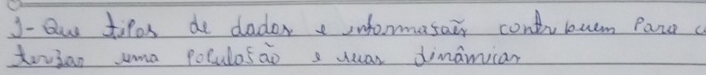 1- Que tipos de dados e informasaẽs contribuem Para c
terizar uma populasão e suas dinâmicas